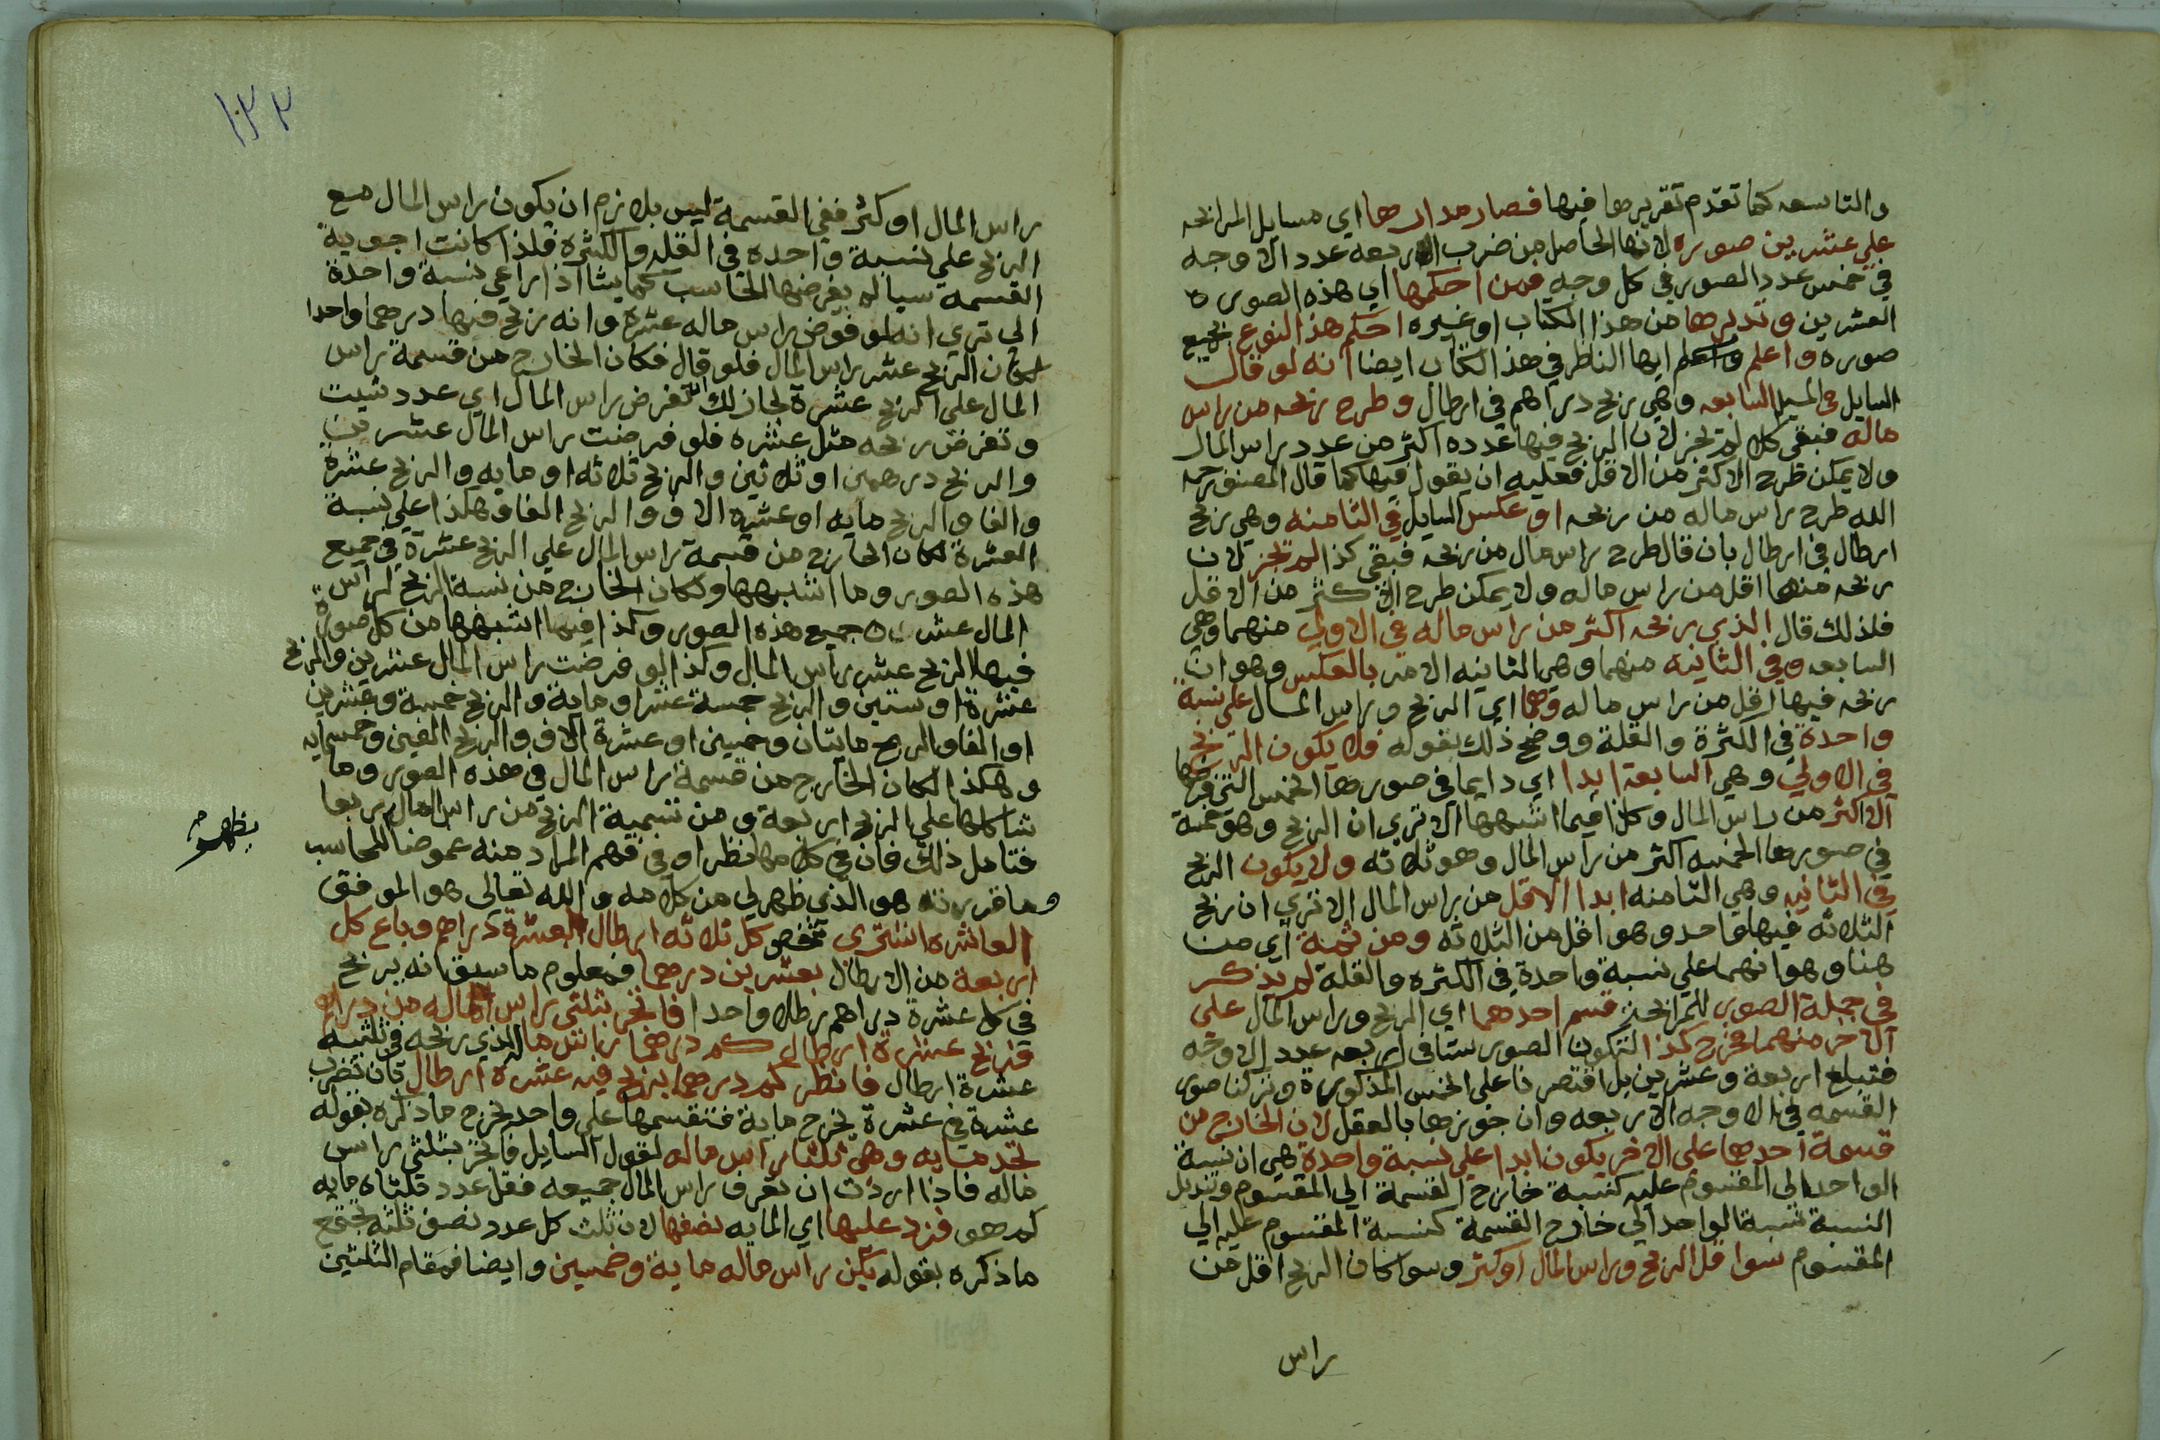 والتاسعه كما تقدم تقريرها فيها فصار مدارها اي مسايل المرابحه
علي عشرين صوره لانها الحاصل من ضرب الاربعه عدد الاوجه
في خمس عدد الصور في كل وجه فمن احكمها اي هذه الصور
العشرين وتدبرها من هذا الكتاب او غيره احكم هذا النوع بجميع
صوره واعلم ايها الناظر في هذا الكتاب ايضا انه لو قال
السايل في المسيله السابعه وهي ربح دراهم في ارطال وطرح ربحه من راس
ماله فبقي كذا لم تجز لان الربح فيها عدده اكثر من عدد راس المال
ولا يمكن طرح الاكثر من الاقل فعليه ان يقول فيها كما قال المصنف رحمه
الله طرح راس ماله من ربحه او عكس السايل في الثامنه وهي ربح
ارطال في ارطال بان قال طرح راس مال من ربحه فبقي كذا لم تجز لان
ربحه منها اقل من راس ماله ولا يمكن طرح الاكثر من الاقل
فلذلك قال الذي ربحه اكثر من راس ماله في الاولي منهما وهي
السابعه وفي الثانيه منهما وهي الثانيه الامر بالعكس وهو ان
ربحه فيها اقل من راس ماله وهما اي الربح وراس المال علي نسبة
واحدة في الكثرة والقلة ووضح ذلك بقوله فلا يكون الربح
في الاولي وهي السابعة ابدا اي دايما في صورها الخمس التي فرضها
الا اكثر من راس المال وكذا فيما اشبهها الا تري ان الربح وهو خمسة
في صورها الخمسه اكثر من راس المال وهو ثلاثه ولا يكون الربح
في الثانيه وهي الثامنه ابدا الا اقل من راس المال الا تري ان ربح
الثلاثه فيها واحد وهو اقل من الثلاثه ومن ثمة اي من
هنا وهو انهما علي نسبة واحدة في الكثره والقلة لم يذكر
في جملة الصور للمرابحة قسم احدهما اي الربح وراس المال علي
الاخر منهما فخرج كذا لتكون الصور ستا في اربعه عدد الاوجه
فتبلغ اربعة وعشرين بل اقتصرنا علي الخمس المذكورة وتركنا صور
القسمه في الاوجه الاربعه وان جوزها بالعقل لان الخارج من
قسمة احدها علي الاخر يكون ابدا علي نسبة واحدة هي ان نسبة
الواحد الي المقسوم عليه كنسبة خارج القسمة الي المقسوم وتبديل
النسبة نسبة الواحد الي خارج القسمة كنسبة المقسوم عليه الي
المقسوم سوا قل الربح وراس المال او كثر وسوا كان الربح اقل من
راس
١٣٢
راس المال او كثر ففي القسمة ليس بلازم ان يكون راس المال مع
الربح علي نسبة واحده في القله والكثره فلذا كانت اجوبة
القسمه سياله يفرضها الحاسب كما يشا اذا راعي نسبة واحدة
الي تري انه لو فرض راس ماله عشرة وانه ربح فيها درهما واحدا
لكان الربح عشر راس المال فلو قال فكان الخارج من قسمة راس
المال علي الربح عشرة لجاز لك ان تفرض راس المال اي عدد شيت
وتفرض ربحه مثل عشره فلو فرضت راس المال عشرين
والربح درهمين او ثلاثين والربح ثلاثه او مايه والربح عشرة
والفا والربح مايه او عشره الاف والربح الفا وهكذا علي نسبة
العشرة لكان الخارج من قسمة راس المال علي الربح عشرة في جميع
هذه الصور وما اشبهها ولكان الخارج من نسبة الربح لراس
المال عشر في جميع هذه الصور وكذا فيها اشبهها من كل صورة
فيها الربح عشر راس المال وكذا لو فرضت راس المال عشرين والربح
عشرة او ستين والربح خمسة عشر او ماية والربح خمسة وعشرين
او الفا والربح مايتان وخمسين او عشرة الاف والربح الفين وخمسمايه
وهكذا لكان الخارج من قسمة راس المال في هذه الصور وما
شاكلها علي الربح اربعة ومن تسمية الربح من راس المال ربعا
فتامل ذلك فان في كلامها نظرا وفي فهم المراد منه غموضا للمحاسب
وما قررته هو الذي ظهر لي من كلامه والله تعالى هو الموفق
يظهر
العاشره اشتري شخص كل ثلاثه ارطال العشرة دراهم وباع كل
اربعة من الارطال بعشرين درهما فمعلوم ما سبق انه يربح
في كل عشرة دراهم رطلا واحدا فاتجر بثلثي راس ماله من دراهم
فربح عشرة ارطال كم درهما راس ماله الذي ربحه في ثلثيه
عشرة ارطال فانظر كم درهما يربح فيه عشرة ارطال بان تضرب
عشرة في عشرة يخرج ماية فتقسمها علي واحد يخرج ما ذكره بقوله
تجد مايه وهي ثلثا راس ماله لقول السايل فاتجر بثلثي راس
ماله فاذا اردت ان تعرف راس المال جميعه فقل عدد ثلثاه مايه
كم هو فزد عليها اي المايه نصفها لان ثلث كل عدد نصف ثلثيه يجتمع
ما ذكره بقوله يكن راس ماله ماية وخمسين وايضا فمقام الثلثين